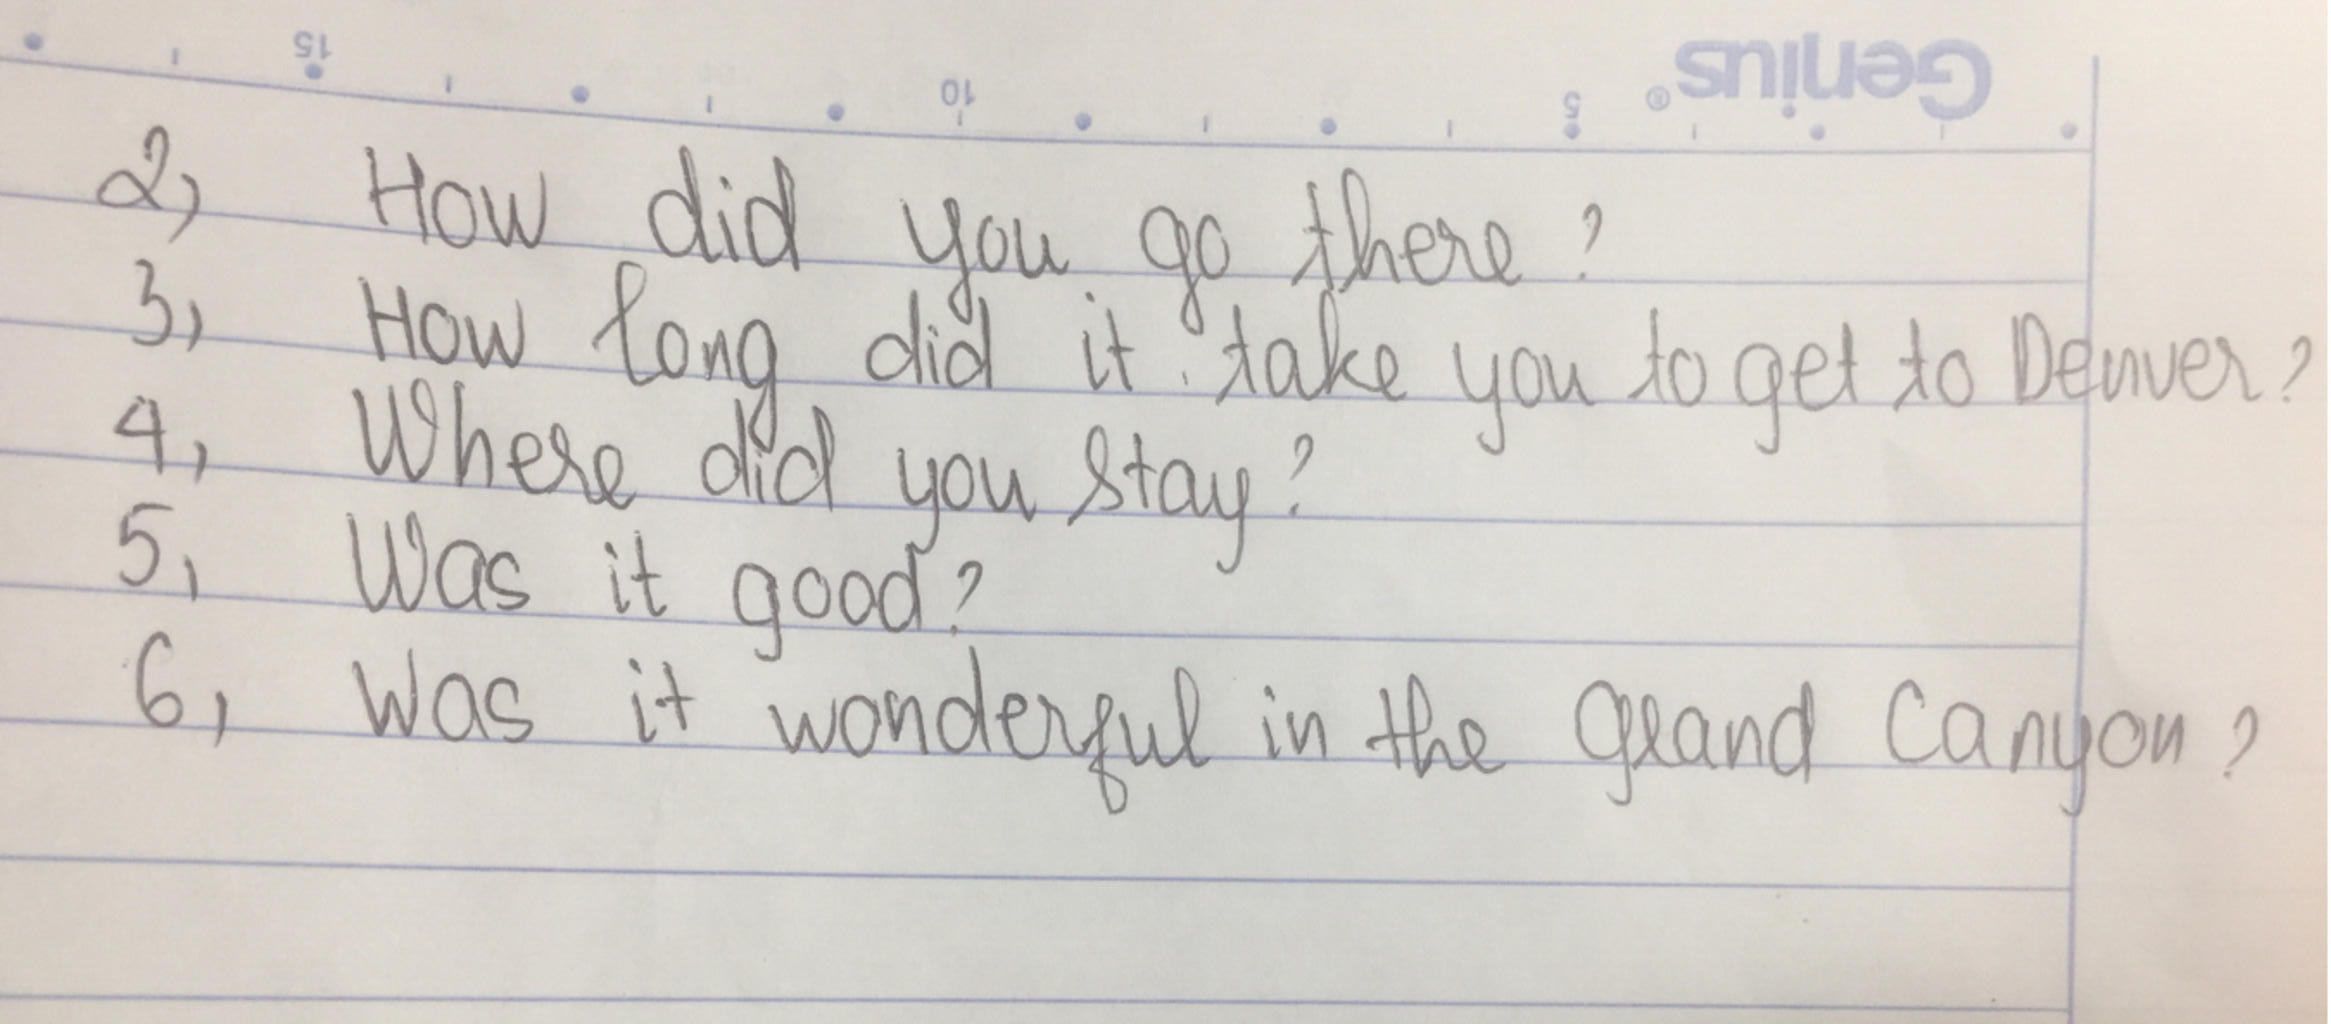 Genius®
15 10 5
2, How did you go there?
3, How long did it take you to get to Denver?
4, Where did you stay?
5, Was it good?
6, Was it wonderful in the Grand Canyon?